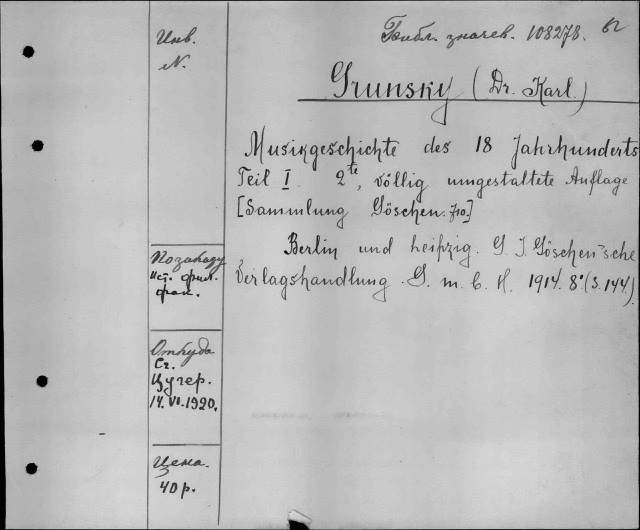 Инв.
N.
Библ. значев. 108278.
Grunsky (Dr. Karl.)
Musikgeschichte des 18 Jahrhunderts
Teil I 2te, völlig umgestaltete Auflage
[Sammlung Göschen. 710]
Berlin und Leipzig. G. J. Göschen'sche
Verlagshandlung. G. m. b. H. 1914. 8° (S. 144).
По заказу
ист. фил.
фак.
Откуда
Ст.
Цучер.
14.VI.1920.
Цена.
40 р.